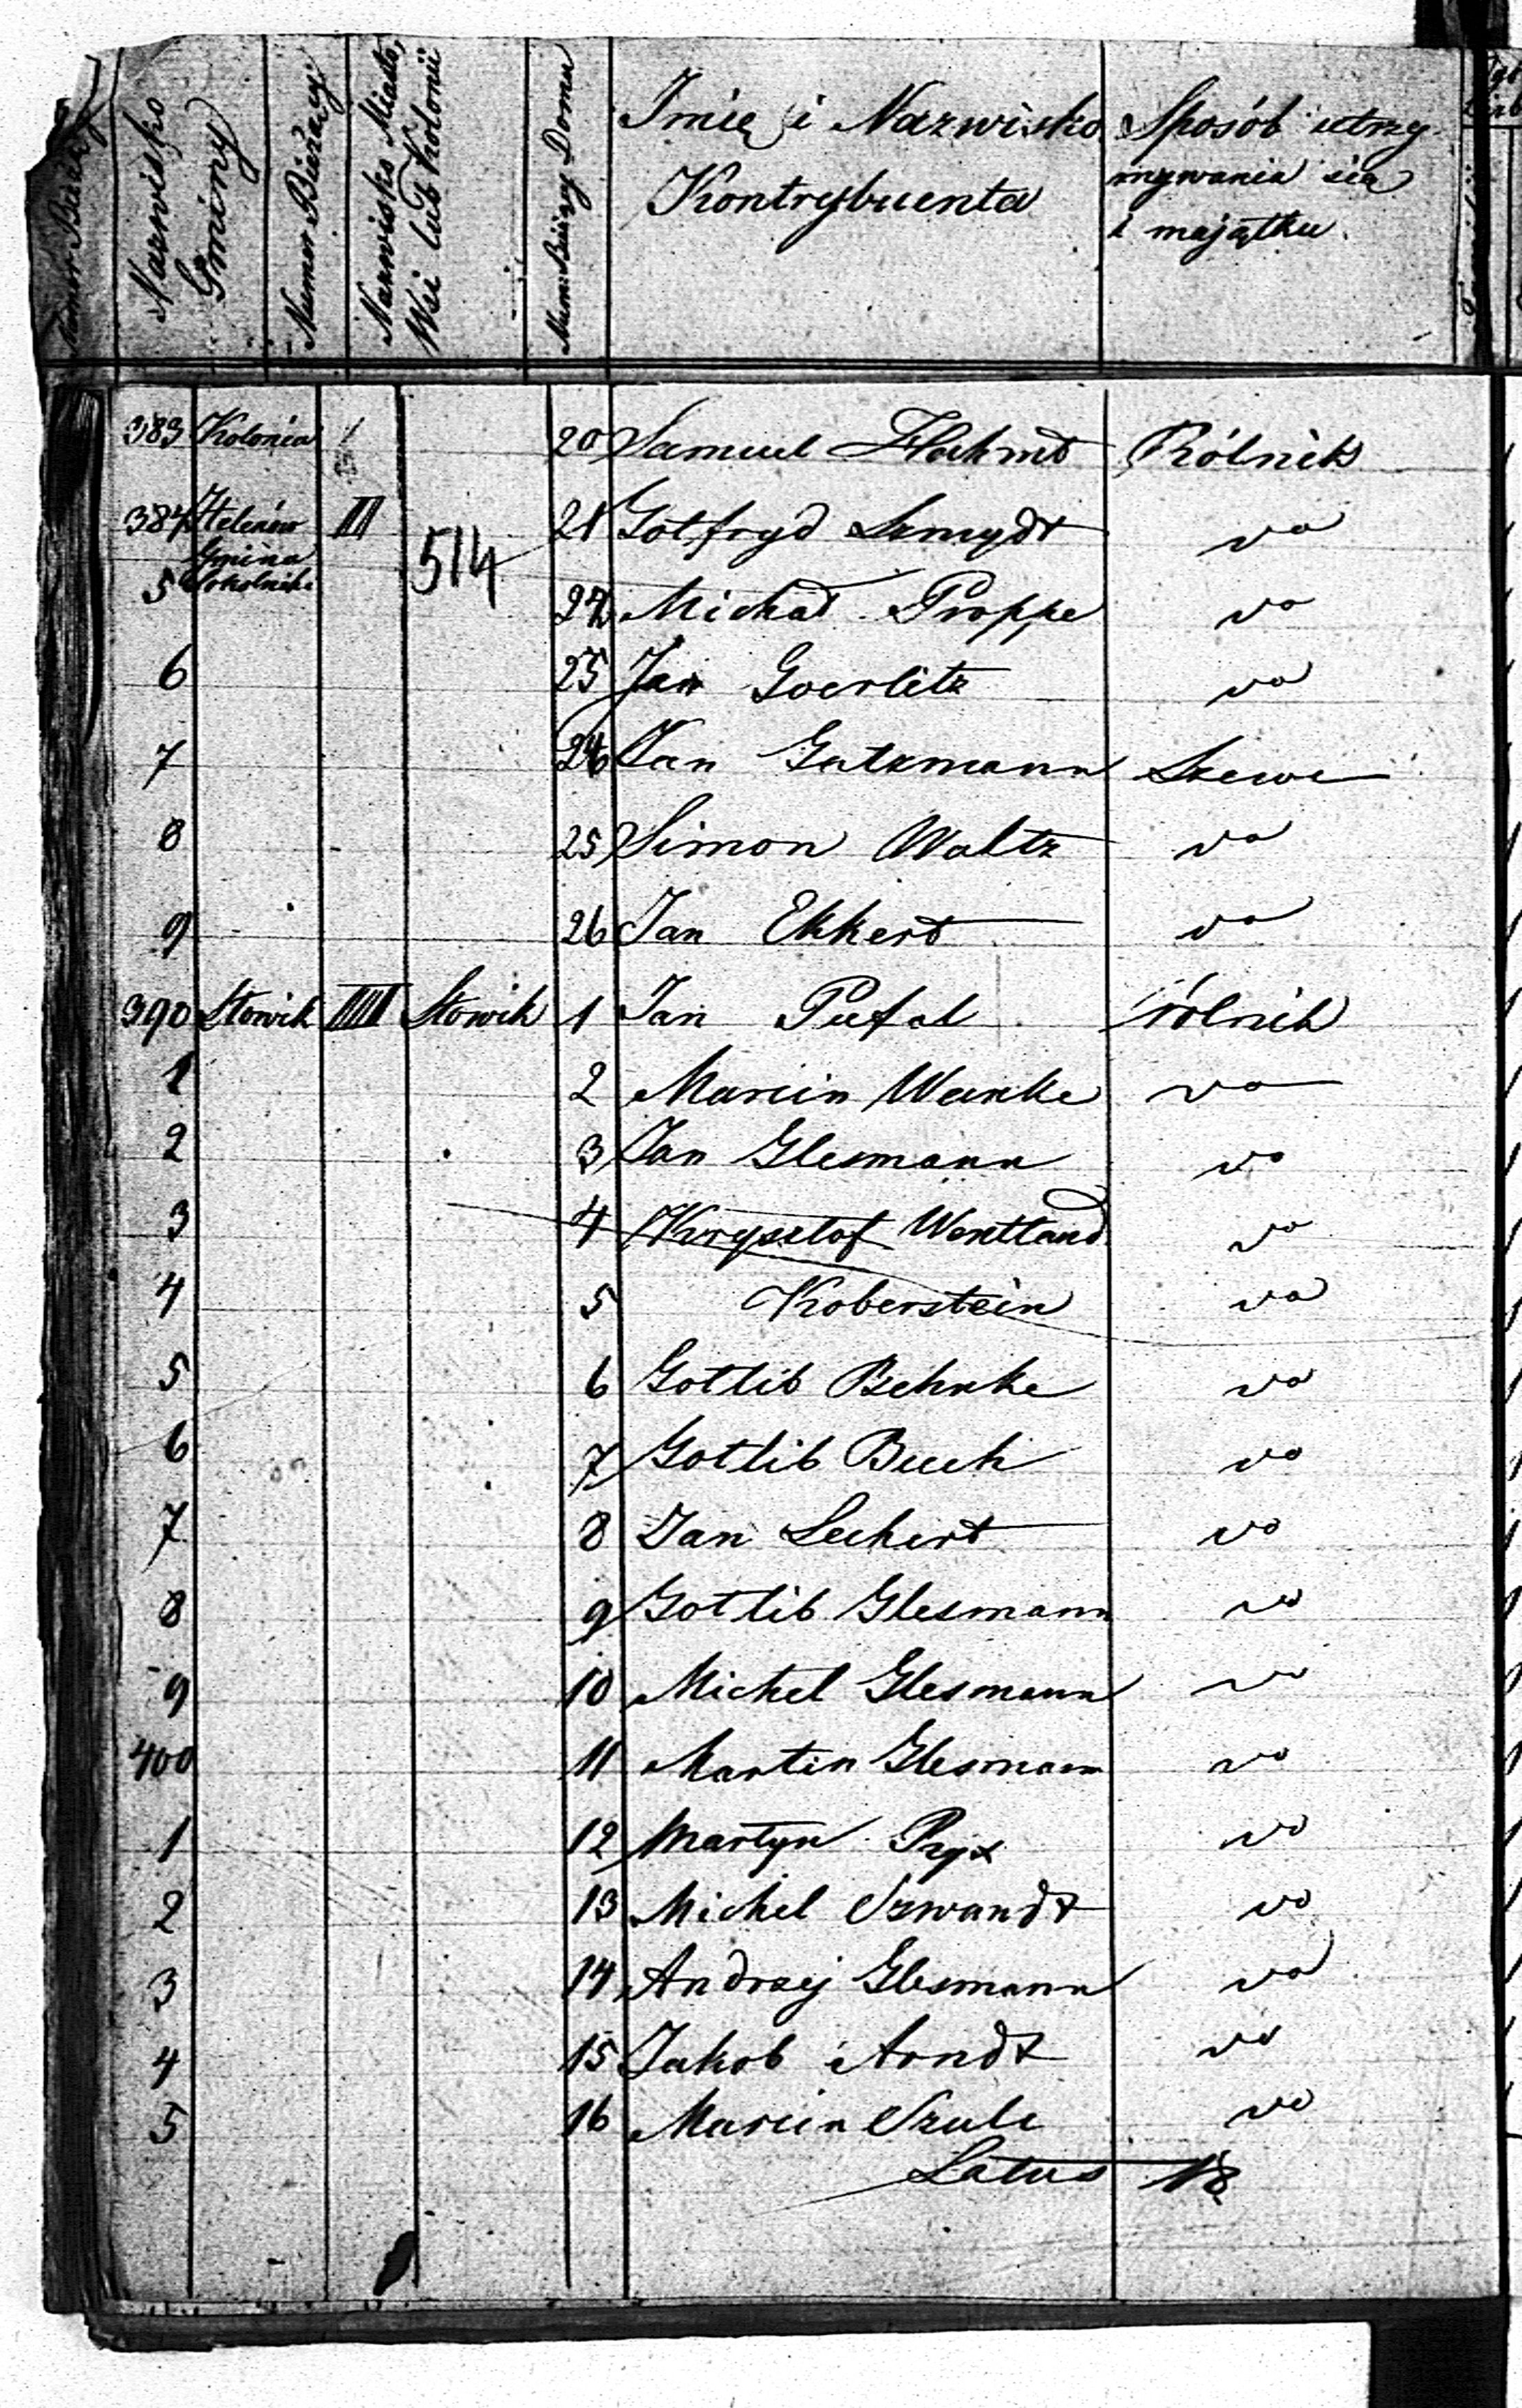 Numer Bieżący
Nazwisko Gminy
Numer Bieżący
Nazwisko Miasta, Wsi lub Kolonii
Num: Bieżący Domu
Imię i Nazwisko
Kontrybuenta
Sposób utrzy-
mywania się
i majątku.
383 Kolonia 1 20 Samuel Rólnik
384 Helenów III 21 Gotfryd Szmydt vo
Gmina
5 Sokolniki 514 22 Michał Proppe vo
6 23 Jan Goerlitz vo
7 24 Jan Gatzmann Szewc
8 25 Simon Waltz vo
9 26 Jan Ekkert vo
390 Słowik IIII Słowik 1 Jan Pufal rólnik
1 2 Marcin Wanke vo
2 3 Jan Glesmann vo
3 4 Krysztof Wentland vo
4 5 Koberstein vo
5 6 Gotlib Behnke vo
6 7 Gotlib Buch vo
7 8 Jan Lechert vo
8 9 Gotlib Glesmann vo
9 10 Michel Glesmann vo
400 11 Martin Glesmann vo
1 12 Martyn vo
2 13 Michel Szwandt vo
3 14 Andrzej Glesmann vo
4 15 Jakob Arndt vo
5 16 Marcin Szulc vo
Latus